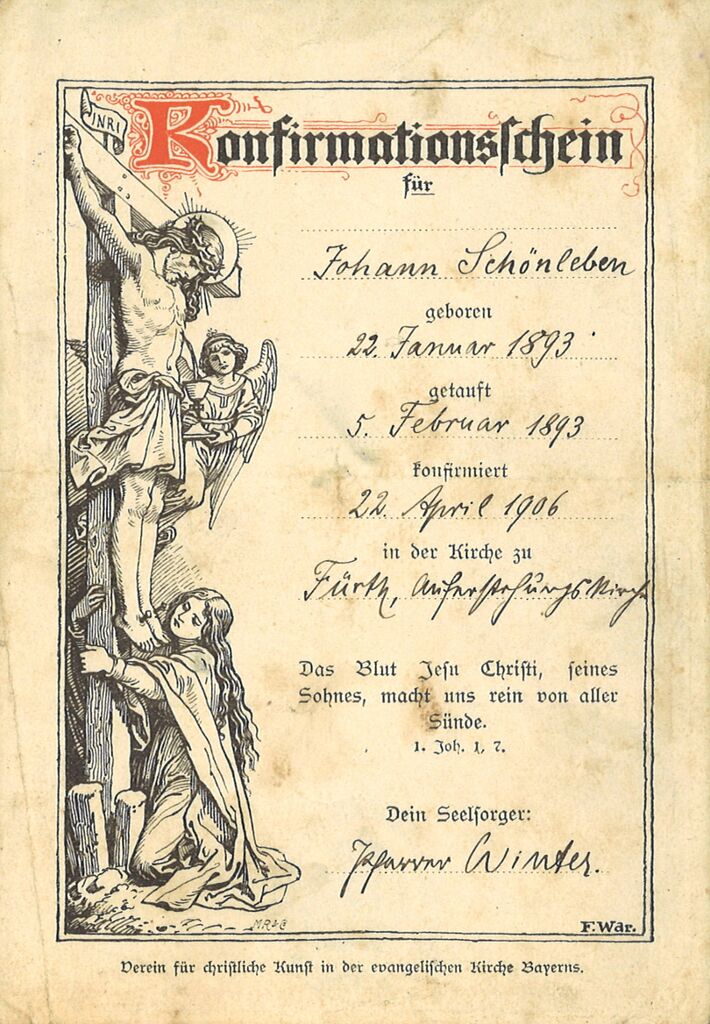 INRI
Konfirmationsschein
für
Johann Schönleben
geboren
22. Januar 1893
getauft
5. Februar 1893
konfirmiert
22. April 1906
in der Kirche zu
Fürth, Auferstehungskirche
Das Blut Jesu Christi, seines
Sohnes, macht uns rein von aller
Sünde.
1. Joh. 1, 7.
Dein Seelsorger:
Pfarrer Winter.
F. Wär.
Verein für christliche Kunst in der evangelischen Kirche Bayerns.